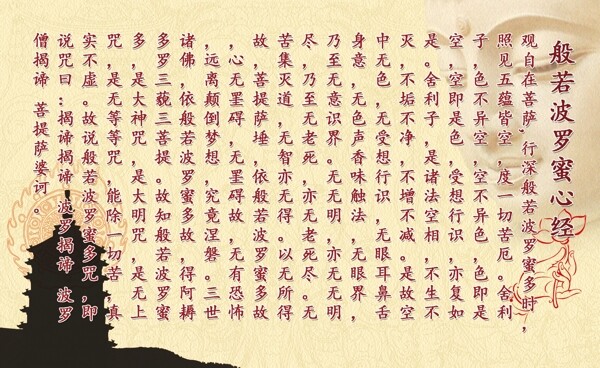 般若波罗蜜心经
观自在菩萨，行深般若波罗蜜多时，
照见五蕴皆空，度一切苦厄。舍利
子，色不异空，空不异色，色即是
空，空即是色，受想行识，亦复如
是。舍利子，是诸法空相，不生不
灭，不垢不净，不增不减。是故空
中无色，无受想行识，无眼耳鼻舌
身意，无色声香味触法，无眼界，
乃至无意识界。无无明，亦无无明
尽，乃至无老死，亦无老死尽。无
苦集灭道，无智亦无得。以无所得
故，菩提萨埵，依般若波罗蜜多故
，心无罣碍，无罣碍故，无有恐怖
，远离颠倒梦想，究竟涅磐。三世
诸佛，依般若波罗蜜多故，得阿耨
多罗三藐三菩提。故知般若波罗蜜
多，是大神咒，是大明咒，是无上
咒，是无等等咒，能除一切苦，真
实不虚。故说般若波罗蜜多咒，即
说咒曰：揭谛揭谛 波罗揭谛 波罗
僧揭谛 菩提萨婆诃。